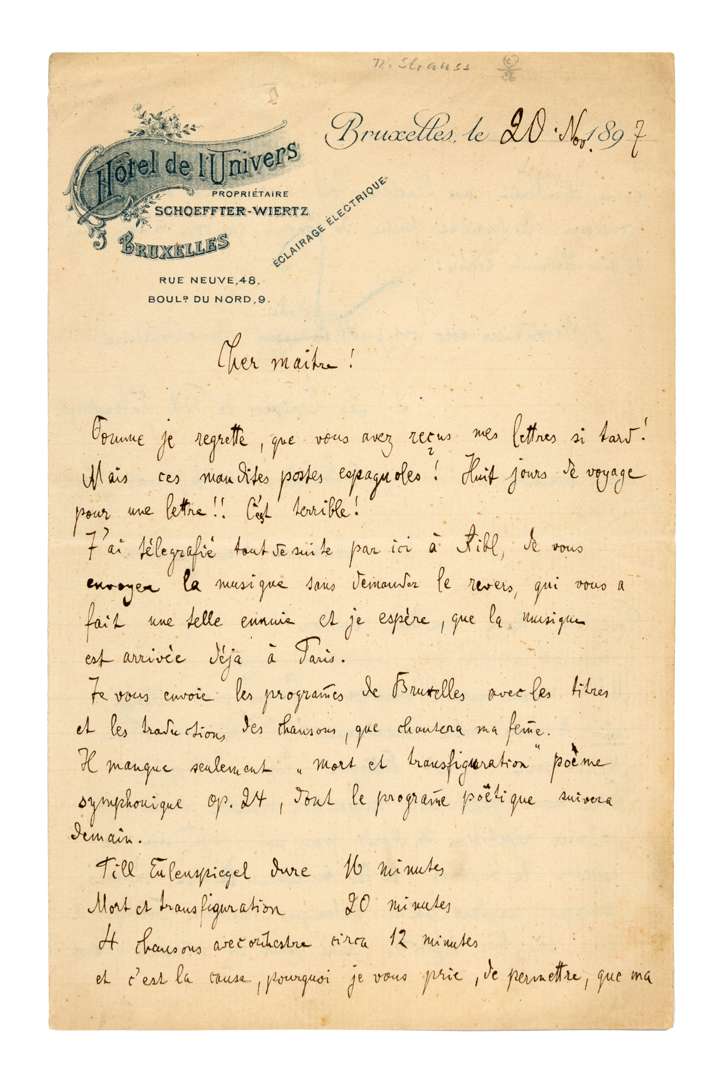 R. Strauss
Bruxelles, le 20 Nov. 1897
Hôtel de l'Univers
PROPRIÉTAIRE
SCHOEFFTER-WIERTZ
BRUXELLES
ÉCLAIRAGE ÉLECTRIQUE.
RUE NEUVE, 48.
BOULD DU NORD, 9.
Cher maitre !
Comme je regrette, que vous avez reçus mes lettres si tard!
Mais ces maudites postes espagnoles! Huit jours de voyage
pour une lettre!! C'est terrible!
J'ai télegrafié tout de suite par ici à Aibl, de vous
envoyer la musique sans demander le revers, qui vous a
fait une telle ennuie et je espère, que la musique
est arrivée déja à Paris.
Je vous envoie les programes de Bruxelles avec les titres
et les traductions des chansons, que chantera ma feme.
Il manque seulement „Mort et transfiguration" poème
symphonique op. 24, dont le programe poëtique suivera
demain.
Till Eulenspiegel dure 16 minutes
Mort et transfiguration 20 minutes
4 chansons avec orchestre circa 12 minutes
et c'est la cause, pourquoi je vous prie, de permettre, que ma